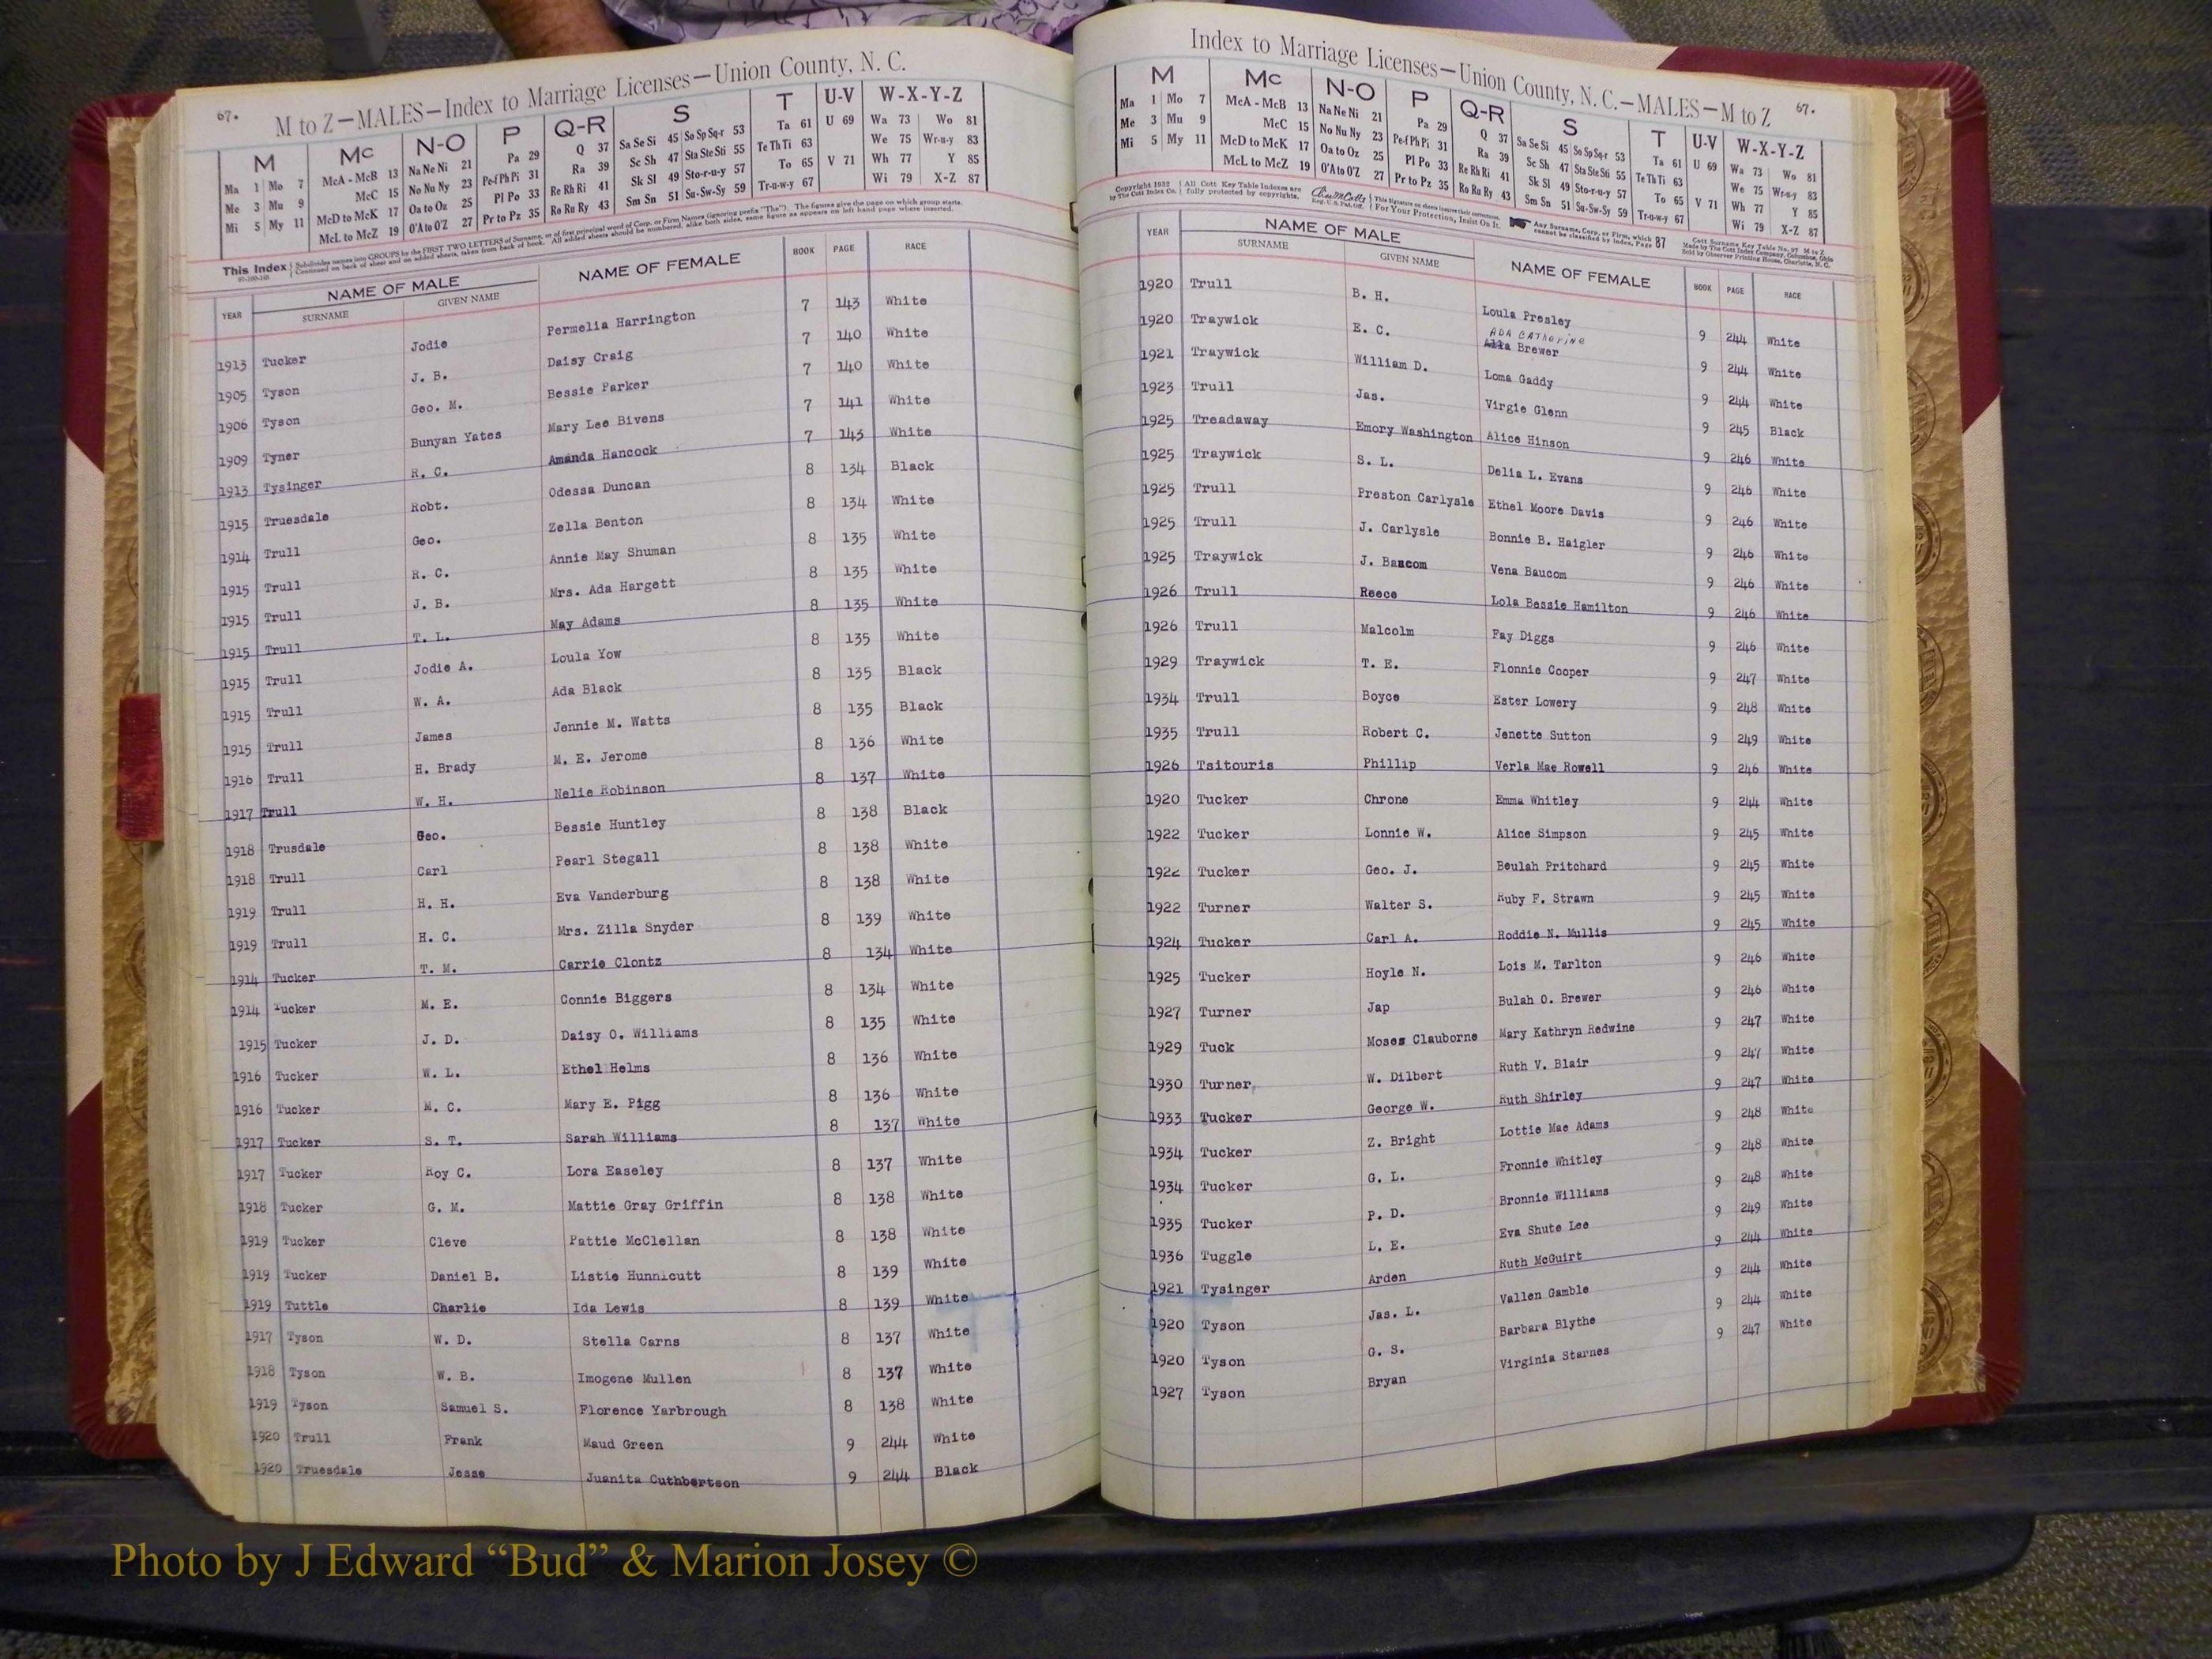 67.
M to Z—MALES—Index to Marriage Licenses—Union County, N. C.
M Mc N-O P Q-R S T U-V W-X-Y-Z
Ma 1 Mo 7 McA - McB 13 Na Ne Ni 21 Pa 29 Q 37 Sa Se Si 45 So Sp Sq-r 53 Ta 61 U 69 Wa 73 Wo 81
Me 3 Mu 9 McC 15 No Nu Ny 23 Pe-f Ph Pi 31 Ra 39 Sc Sh 47 Sta Ste Sti 55 Te Th Ti 63 We 75 Wr-u-y 83
Mi 5 My 11 McD to McK 17 Oa to Oz 25 Pl Po 33 Re Rh Ri 41 Sk Sl 49 Sto-r-u-y 57 To 65 V 71 Wh 77 Y 85
McL to McZ 19 O'A to O'Z 27 Pr to Pz 35 Ro Ru Ry 43 Sm Sn 51 Su-Sw-Sy 59 Tr-u-w-y 67 Wi 79 X-Z 87
This Index Subdivides names into GROUPS by the FIRST TWO LETTERS of Surname, or of first principal word of Corp. or Firm Names (ignoring prefix "The"). The figures give the page on which group starts.
Continued on back of sheet and on added sheets, taken from back of book. All added sheets should be numbered, alike both sides, same figure as appears on left hand page where inserted.
YEAR NAME OF MALE NAME OF FEMALE BOOK PAGE RACE
SURNAME GIVEN NAME
1913 Tucker Jodie Permelia Harrington 7 143 White
1905 Tyson J. B. Daisy Craig 7 140 White
1906 Tyson Geo. M. Bessie Parker 7 140 White
1909 Tyner Bunyan Yates Mary Lee Bivens 7 141 White
1913 Tysinger R. C. Amanda Hancock 7 143 White
1915 Truesdale Robt. Odessa Duncan 8 134 Black
1914 Trull Geo. Zella Benton 8 134 White
1915 Trull R. C. Annie May Shuman 8 135 White
1915 Trull J. B. Mrs. Ada Hargett 8 135 White
1915 Trull T. L. May Adams 8 135 White
1915 Trull Jodie A. Loula Yow 8 135 White
1915 Trull W. A. Ada Black 8 135 Black
1915 Trull James Jennie M. Watts 8 135 Black
1916 Trull H. Brady M. E. Jerome 8 136 White
1917 Trull W. H. Nelie Robinson 8 137 White
1918 Trusdale Geo. Bessie Huntley 8 138 Black
1918 Trull Carl Pearl Stegall 8 138 White
1919 Trull H. H. Eva Vanderburg 8 138 White
1919 Trull H. C. Mrs. Zilla Snyder 8 139 White
1914 Tucker T. M. Carrie Clontz 8 134 White
1914 Tucker M. E. Connie Biggers 8 134 White
1915 Tucker J. D. Daisy O. Williams 8 135 White
1916 Tucker W. L. Ethel Helms 8 136 White
1916 Tucker M. C. Mary E. Pigg 8 136 White
1917 Tucker S. T. Sarah Williams 8 137 White
1917 Tucker Roy C. Lora Easeley 8 137 White
1918 Tucker G. M. Mattie Gray Griffin 8 138 White
1919 Tucker Cleve Pattie McClellan 8 138 White
1919 Tucker Daniel B. Listie Hunnicutt 8 139 White
1919 Tuttle Charlie Ida Lewis 8 139 White
1917 Tyson W. D. Stella Carns 8 137 White
1918 Tyson W. B. Imogene Mullen 8 137 White
1919 Tyson Samuel S. Florence Yarbrough 8 138 White
1920 Trull Frank Maud Green 9 244 White
1920 Truesdale Jesse Juanita Cuthbertson 9 244 Black
Index to Marriage Licenses—Union County, N. C.—MALES—M to Z
67.
M Mc N-O P Q-R S T U-V W-X-Y-Z
Ma 1 Mo 7 McA - McB 13 Na Ne Ni 21 Pa 29 Q 37 Sa Se Si 45 So Sp Sq-r 53 Ta 61 U 69 Wa 73 Wo 81
Me 3 Mu 9 McC 15 No Nu Ny 23 Pe-f Ph Pi 31 Ra 39 Sc Sh 47 Sta Ste Sti 55 Te Th Ti 63 We 75 Wr-u-y 83
Mi 5 My 11 McD to McK 17 Oa to Oz 25 Pl Po 33 Re Rh Ri 41 Sk Sl 49 Sto-r-u-y 57 To 65 V 71 Wh 77 Y 85
McL to McZ 19 O'A to O'Z 27 Pr to Pz 35 Ro Ru Ry 43 Sm Sn 51 Su-Sw-Sy 59 Tr-u-w-y 67 Wi 79 X-Z 87
Copyright 1932 All Cott Key Table Indexes are This Signature on sheets insures their correctness. Any Surname, Corp. or Firm, which Cott Surname Key Table No. 97 M to Z
by The Cott Index Co. fully protected by copyrights. Reg. U.S. Pat. Off. For Your Protection, Insist On It. cannot be classified by index, Page 87 Made by The Cott Index Company, Columbus, Ohio
Sold by Observer Printing House, Charlotte, N. C.
YEAR NAME OF MALE NAME OF FEMALE BOOK PAGE RACE
SURNAME GIVEN NAME
1920 Trull B. H. Loula Presley 9 244 White
ADA CATHERINE
1920 Traywick E. C. Alla Brewer 9 244 White
1921 Traywick William D. Loma Gaddy 9 244 White
1923 Trull Jas. Virgie Glenn 9 245 Black
1925 Treadaway Emory Washington Alice Hinson 9 246 White
1925 Traywick S. L. Delia L. Evans 9 246 White
1925 Trull Preston Carlysle Ethel Moore Davis 9 246 White
1925 Trull J. Carlysle Bonnie B. Haigler 9 246 White
1925 Traywick J. Baucom Vena Baucom 9 246 White
1926 Trull Reece Lola Bessie Hamilton 9 246 White
1926 Trull Malcolm Fay Diggs 9 246 White
1929 Traywick T. E. Flonnie Cooper 9 247 White
1934 Trull Boyce Ester Lowery 9 248 White
1935 Trull Robert C. Jenette Sutton 9 249 White
1926 Tsitouris Phillip Verla Mae Rowell 9 246 White
1920 Tucker Chrone Emma Whitley 9 244 White
1922 Tucker Lonnie W. Alice Simpson 9 245 White
1922 Tucker Geo. J. Beulah Pritchard 9 245 White
1922 Turner Walter S. Ruby F. Strawn 9 245 White
1924 Tucker Carl A. Roddie N. Mullis 9 245 White
1925 Tucker Hoyle N. Lois M. Tarlton 9 246 White
1927 Turner Jap Bulah O. Brewer 9 246 White
1929 Tuck Moses Clauborne Mary Kathryn Redwine 9 247 White
1930 Turner W. Dilbert Ruth V. Blair 9 247 White
1933 Tucker George W. Ruth Shirley 9 247 White
1934 Tucker Z. Bright Lottie Mae Adams 9 248 White
1934 Tucker G. L. Fronnie Whitley 9 248 White
1935 Tucker P. D. Bronnie Williams 9 248 White
1936 Tuggle L. E. Eva Shute Lee 9 249 White
1921 Tysinger Arden Ruth McGuirt 9 244 White
1920 Tyson Jas. L. Vallen Gamble 9 244 White
1920 Tyson G. S. Barbara Blythe 9 244 White
1927 Tyson Bryan Virginia Starnes 9 247 White
Photo by J Edward “Bud” & Marion Josey ©